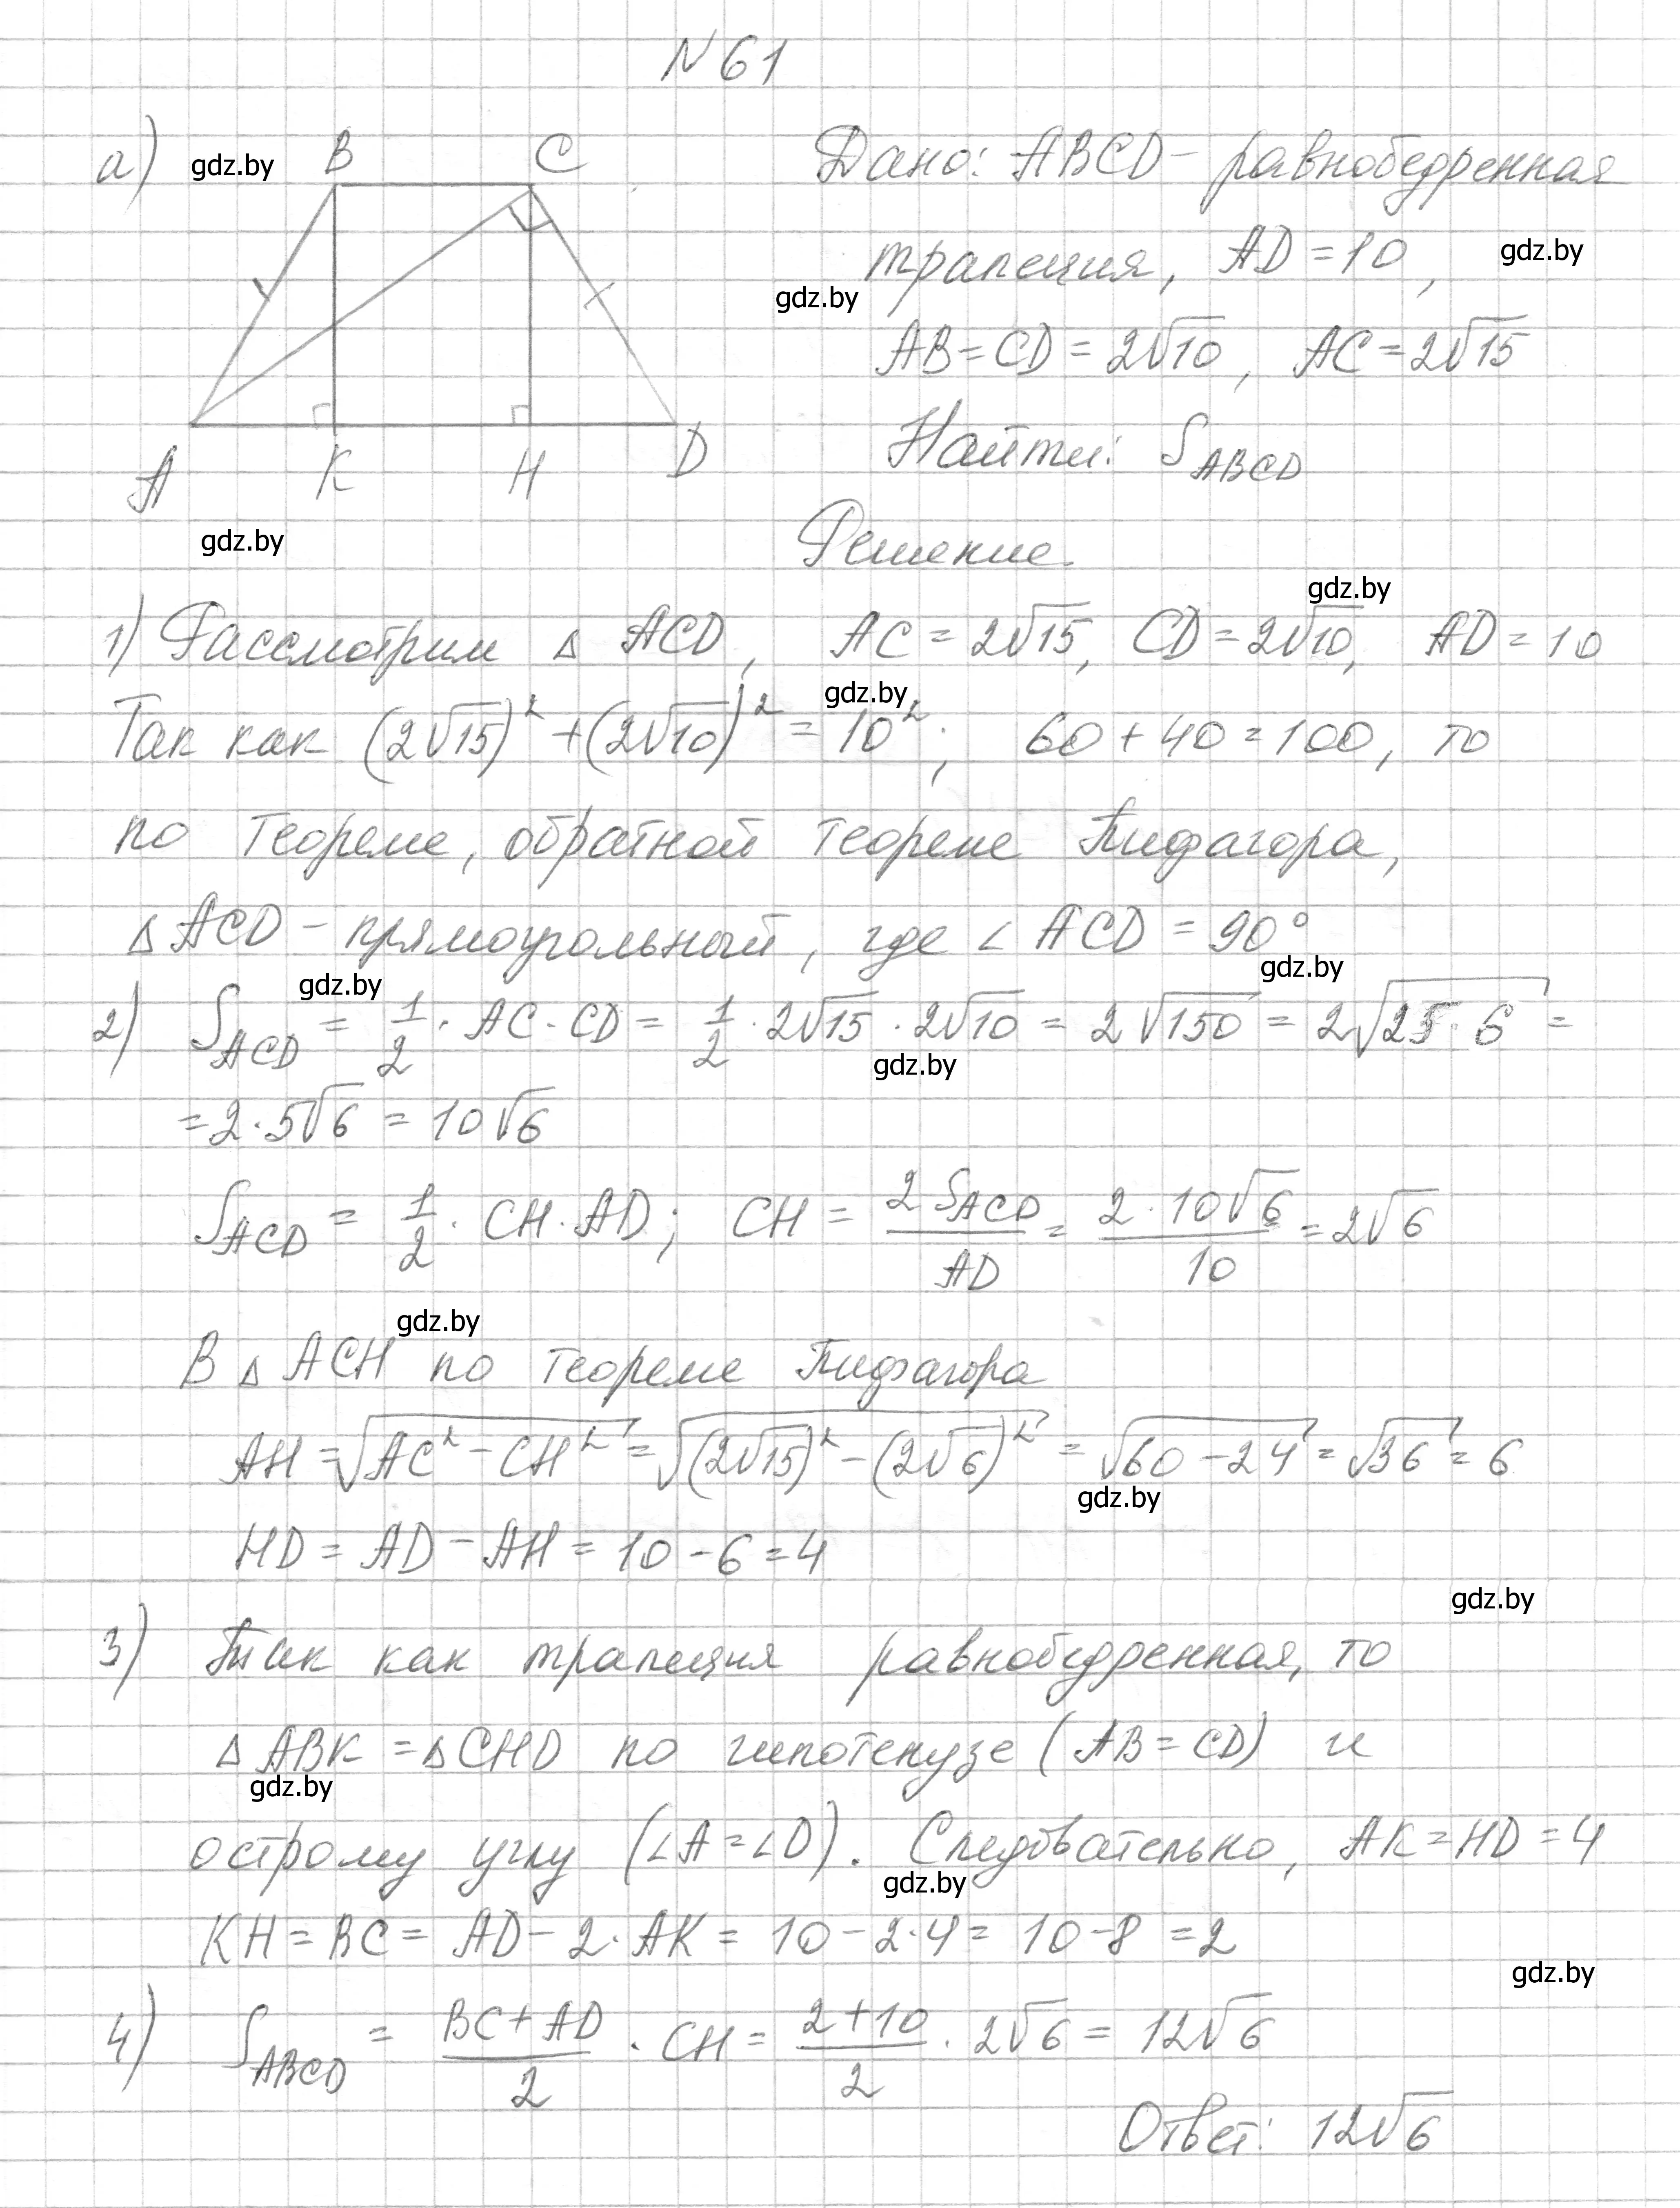 N 61
а) gdz.by B C Дано: ABCD – равнобедренная
трапеция, AD = 10, gdz.by
gdz.by
AB = CD = 2√10, AC = 2√15
Найти: S_ABCD
A K H D
gdz.by
Решение.
gdz.by
1) Рассмотрим △ ACD, AC = 2√15, CD = 2√10, AD = 10
gdz.by
Так как (2√15)² + (2√10)² = 10²; 60 + 40 = 100, то
по теореме, обратной теореме Пифагора,
△ ACD – прямоугольный, где ∠ ACD = 90°
gdz.by gdz.by
2) S_ACD = 1/2 · AC · CD = 1/2 · 2√15 · 2√10 = 2√150 = 2√(25 · 6) =
gdz.by
= 2 · 5√6 = 10√6
S_ACD = 1/2 · CH · AD; CH = 2 S_ACD / AD = 2 · 10√6 / 10 = 2√6
gdz.by
В △ ACH по теореме Пифагора
AH = √(AC² – CH²) = √((2√15)² – (2√6)²) = √(60 – 24) = √36 = 6
gdz.by
HD = AD – AH = 10 – 6 = 4
gdz.by
3) Так как трапеция равнобедренная, то
△ ABK = △ CHD по гипотенузе (AB = CD) и
gdz.by
острому углу (∠A = ∠D). Следовательно, AK = HD = 4
gdz.by
KH = BC = AD – 2 · AK = 10 – 2 · 4 = 10 – 8 = 2
gdz.by
4) S_ABCD = (BC + AD)/2 · CH = (2 + 10)/2 · 2√6 = 12√6
Ответ: 12√6